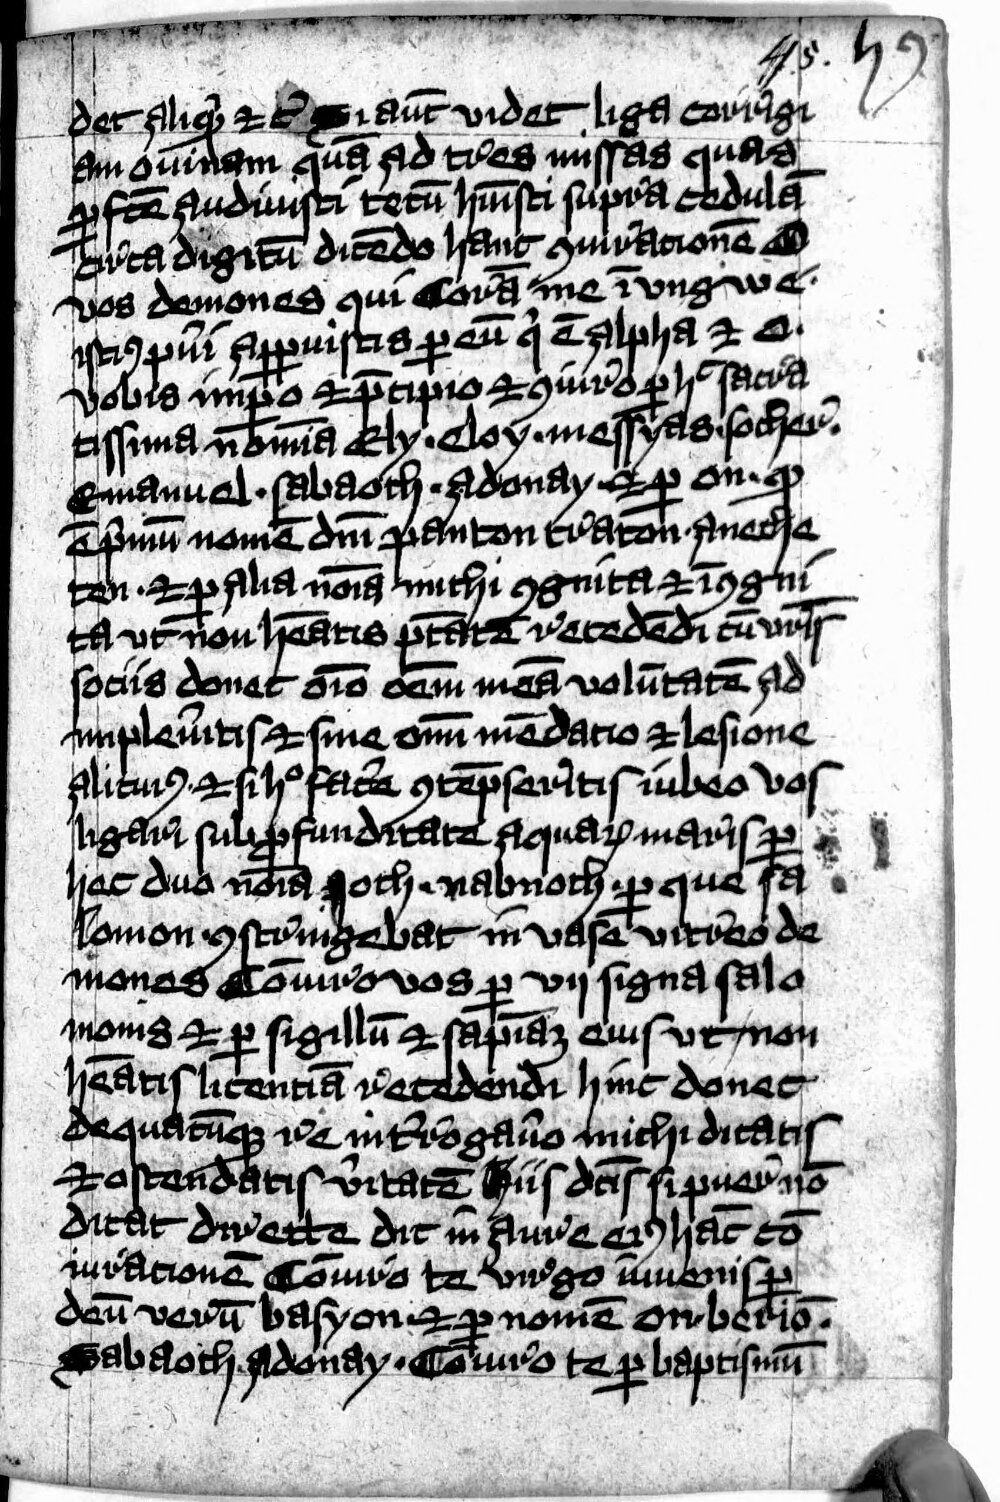 45. h9
det aliqđ & c̄ Si aūt videt liga corrigi
am ouinam quā ad tres missas quas
ꝑfcē audiuisti tecū hūisti supra cedulā
circa digitū dicēdo hanc ꝯiurationē O
vos demones qui Corā me ī vngwe
istiꝰ pu̇i apꝑuistis ꝑ eū q̇ ē alpha & o.
vobis imꝑo & p̄cipio & ꝯiuro ꝑ hͨ sacra
tissima nomīa Ely. Eloy. messyas. socher.
Emanuel. sabaoth. adonay. & ꝑ on. qđ
ē p̄mū nomē dn̄i panton craton. anethe
ten. & ꝑ alia noīa michi ꝯgnita & īꝯgni
ta vt non hēatis ptātē recedēdi cū vr̄is
sociis donec oīo oēm meā volūtatē ad
impleūitis & sine omī mēdacio & lesione
alicuiꝰ. & si hͦ facͤe ꝯtēpseritis iubeo vos
ligari sub ꝓfunditate aquaꝝ maris ꝑ
hec duo noīa ioth. nabnoth. ꝑ que sa
lomon ꝯstringebat in vase vitreo de
mones Cōiuro vos ꝑ vij signa salo
monis & ꝑ sigillū & sapīaꝫ eius vt non
hēatis licentiā recedendi hinc donec
de quacūqꝫ re int̄rogau̇o michi dicatis
& ostendatis v̄itatē Hiis dc̄is si puer nō
dicat directe dic in aure eiꝰ hāc cō
iurationē Cōiuro te virgo iuuenis ꝑ
deū verū basyon & ꝑ nomē on. beriō.
Sabaoth. adonay. Cōiuro te ꝑ baptismū